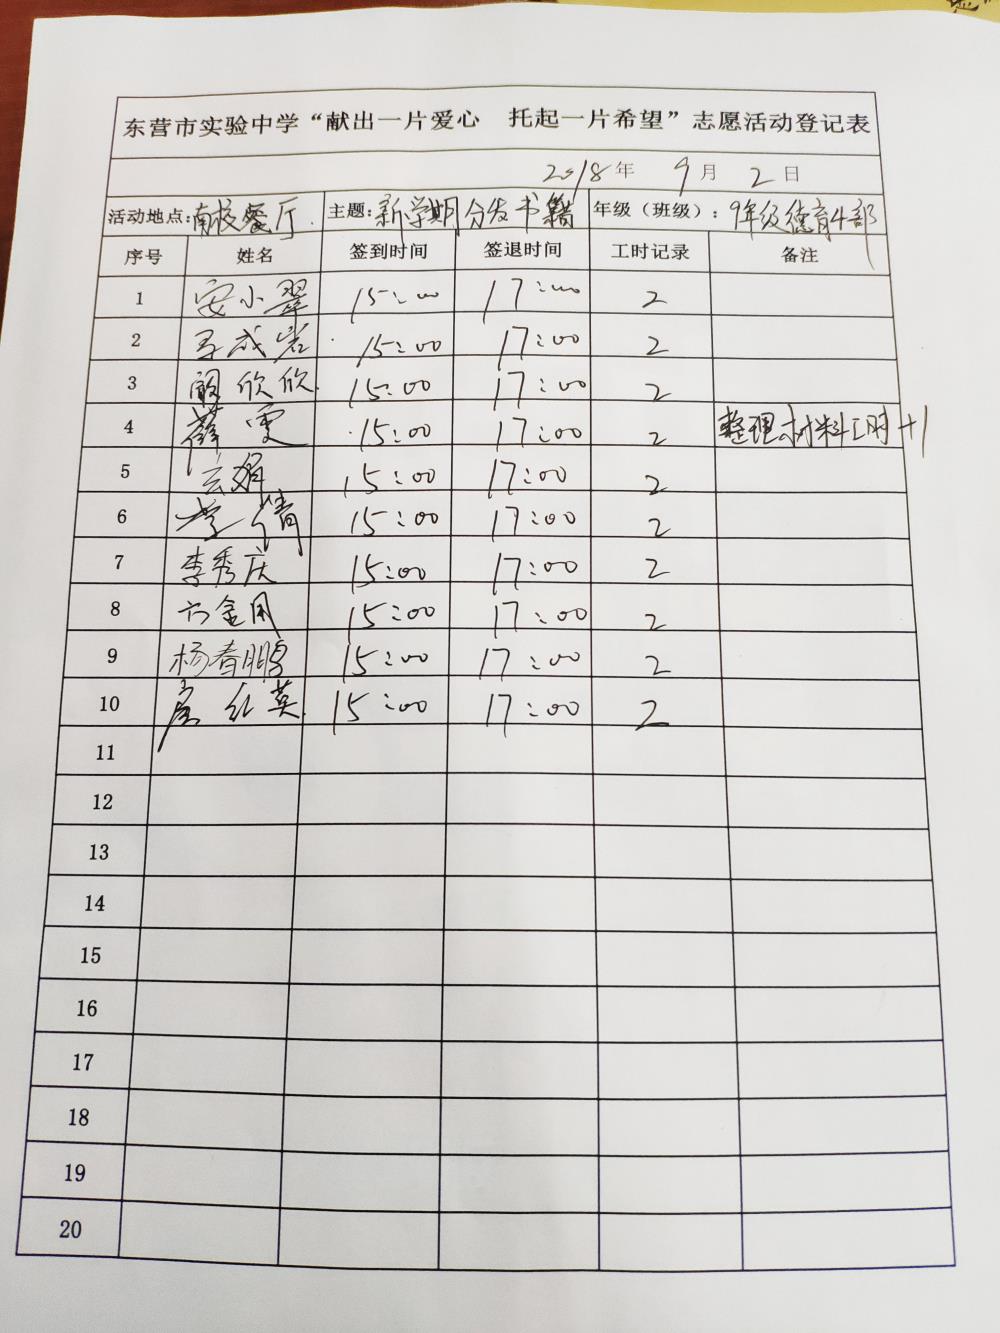 东营市实验中学“献出一片爱心 托起一片希望”志愿活动登记表
2018年 9月 2日
活动地点:南校餐厅. 主题:新学期分发书籍 年级（班级）:9年级德育4部
序号 姓名 签到时间 签退时间 工时记录 备注
1 安小翠 15:00 17:00 2
2 成岩 15:00 17:00 2
3 殷欣欣 15:00 17:00 2
4 薛雯 15:00 17:00 2 整理材料工时+1
5 娟 15:00 17:00 2
6 李倩 15:00 17:00 2
7 李秀庆 15:00 17:00 2
8 金用 15:00 17:00 2
9 杨春鹏 15:00 17:00 2
10 红英 15:00 17:00 2
11
12
13
14
15
16
17
18
19
20